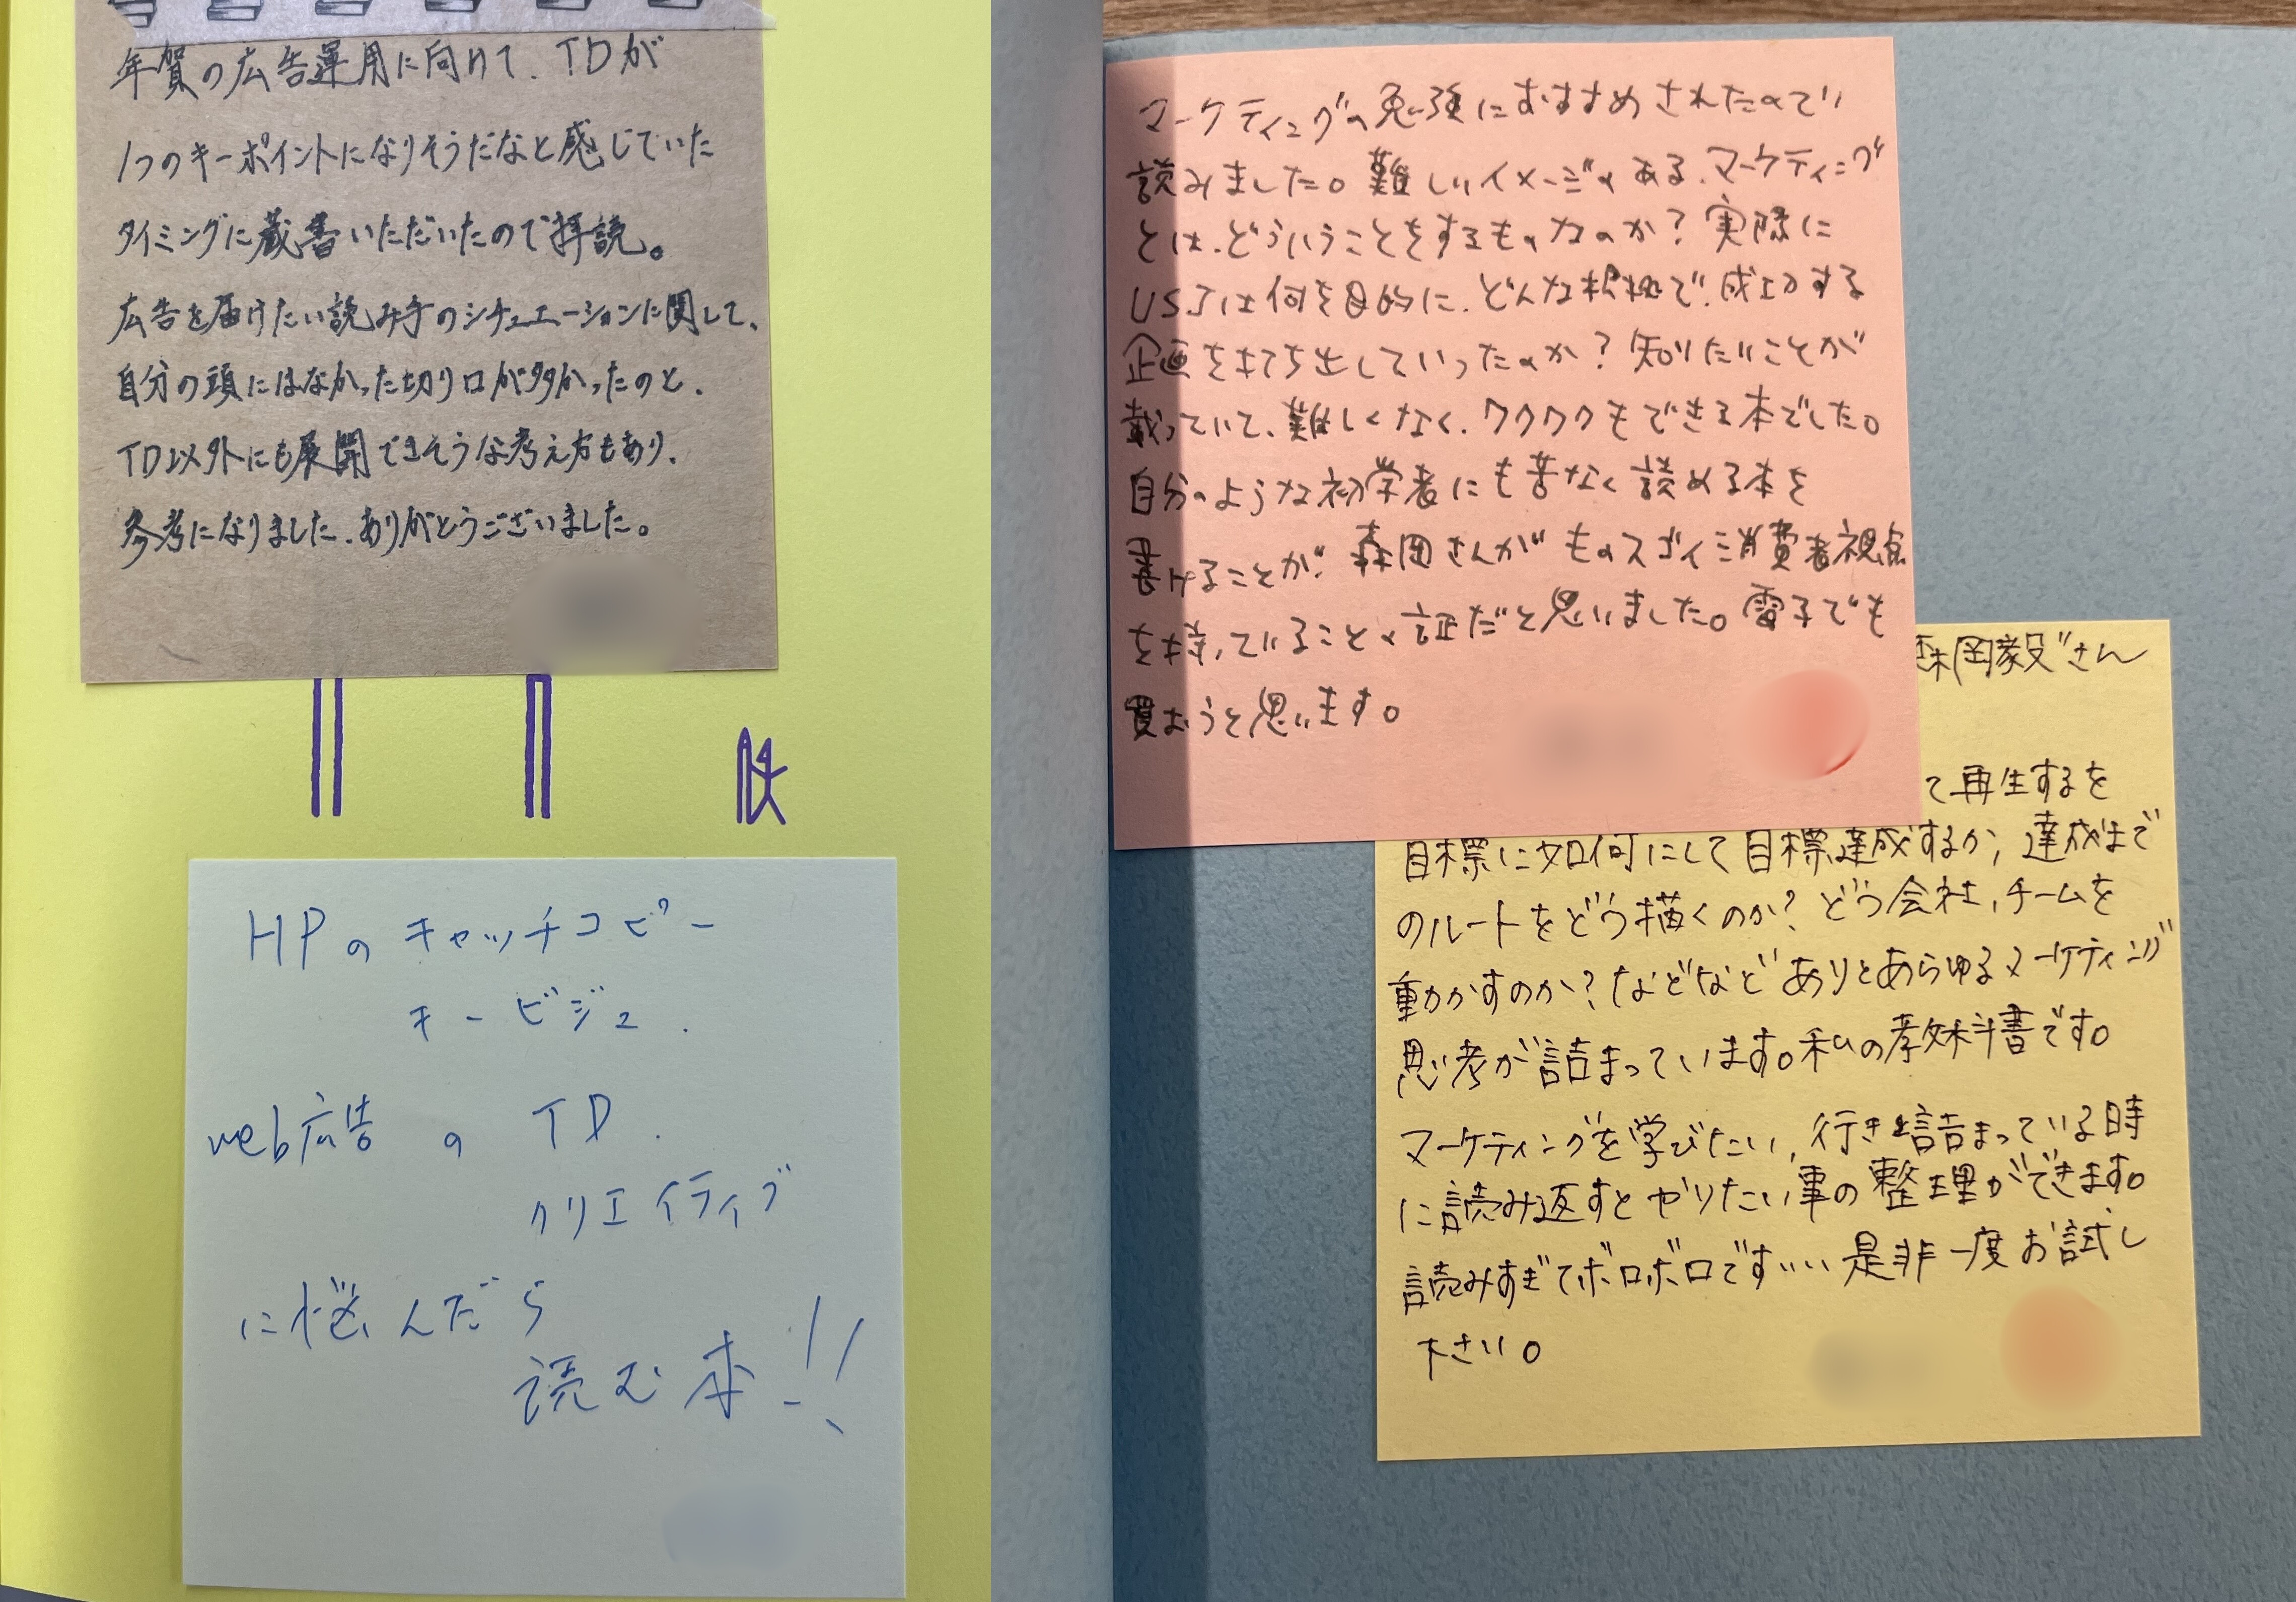 年賀の広告運用に向けて、TDが
1つのキーポイントになりそうだなと感じていた
タイミングに蔵書いただいたので拝読。
広告を届けたい読み手のシチュエーションに関して、
自分の頭にはなかった切り口が多かったのと、
TD以外にも展開できそうな考え方もあり、
参考になりました。ありがとうございました。
HPのキャッチコピー
キービジュ.
web広告のTD.
クリエイティブ
に悩んだら
読む本!!
マーケティングの勉強におすすめされたので
読みました。難しいイメージのある、マーケティング
とは、どういうことをするものなのか?実際に
USJは何を目的に、どんな根拠で、成功する
企画を打ち出していったのか?知りたいことが
載っていて、難しくなく、ワクワクもできる本でした。
自分のような初学者にも苦なく読める本を
書けることが、森岡さんがものスゴイ消費者視点
を持っていることの証だと思いました。電子でも
買おうと思います。
森岡毅"さん
て再生するを
目標に如何にして目標達成するか,達成まで
のルートをどう描くのか?どう会社,チームを
動かすのか?などなどありとあらゆるマーケティング
思考が詰まっています。私の教科書です。
マーケティングを学びたい,行き詰まっている時
に読み返すとやりたい事の整理ができます。
読みすぎてボロボロです…是非一度お試し
下さい。